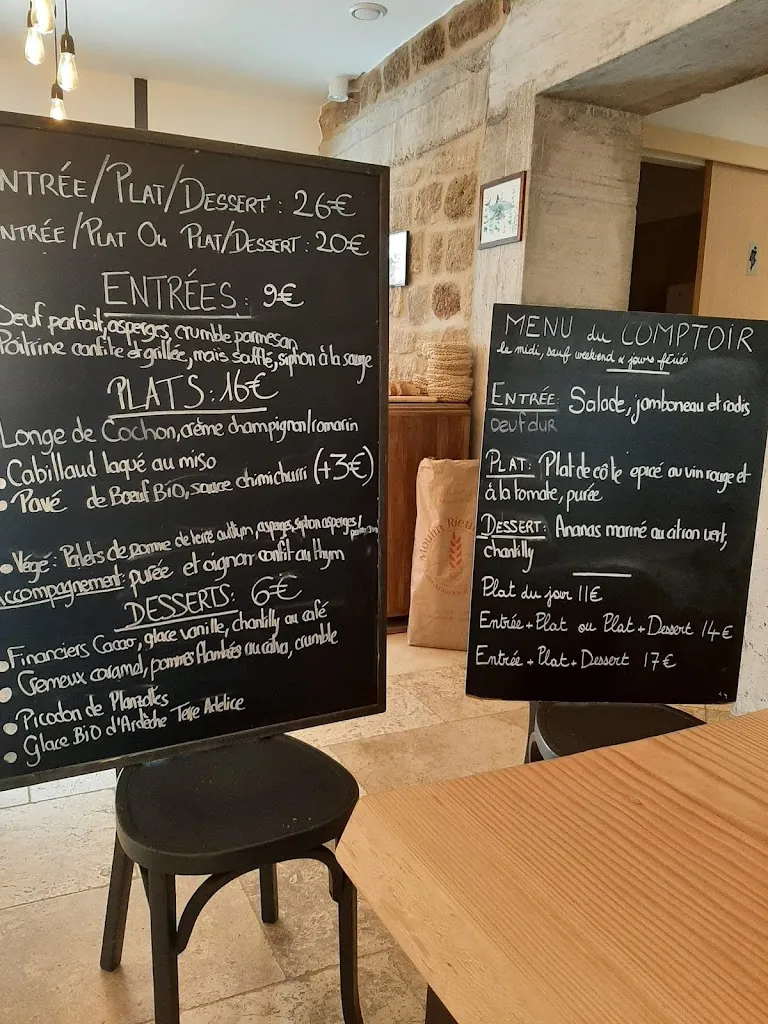 NTRÉE/PLAT/DESSERT: 26€
NTRÉE/PLAT OU PLAT/DESSERT: 20€
ENTRÉES: 9€
Oeuf parfait, asperges, crumble parmesan
Poitrine confite et grillée, maïs soufflé, siphon à la sauge
PLATS: 16€
Longe de Cochon, crème champignon/romarin
• Cabillaud laqué au miso
• Pavé de Bœuf BiO, sauce chimichurri (+3€)
• Végé: Palets de pomme de terre au thym, asperges, siphon asperges/
parmesan
Accompagnement: purée et oignon confit au thym
DESSERTS: 6€
• Financiers Cacao, glace vanille, chantilly au café
• Crémeux caramel, pommes flambées au calva, crumble
• Picodon de Planzolles
• Glace BiO d'Ardèche Terre Adelice
MENU du COMPTOIR
le midi, sauf weekend & jours fériés
ENTRÉE: Salade, jamboneau et radis
oeuf dur
PLAT: Plat de côte épicé au vin rouge et
à la tomate, purée
DESSERT: Ananas mariné au citron vert,
chantilly
Plat du jour 11€
Entrée + Plat ou Plat + Dessert 14€
Entrée + Plat + Dessert 17€
Moulin